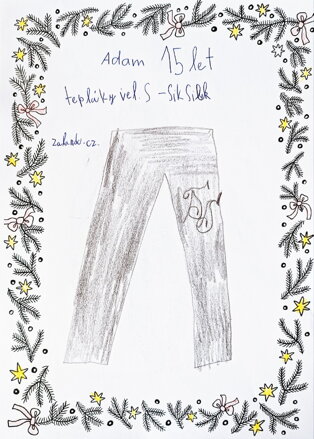 Adam 15 let
tepláky vel. S - SikSilk
zalando.cz.